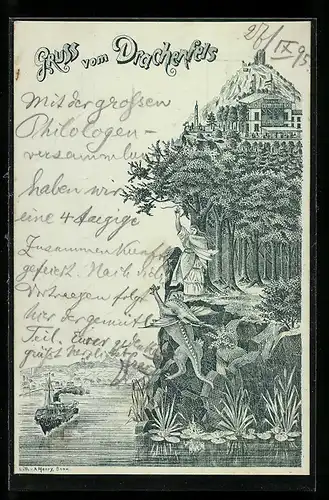 Gruss vom Drachenfels
27/IX 95.
Mit der grossen
Philologen-
versammlu
haben wir
eine 4 taegige
Zusammenkunft
gefeiert. Nach viel
Vortraegen folgt
hier der gemütl.
Teil. Eurer gedenkt
grüßt herzlich
Lith. v. A. Henry, Bonn.